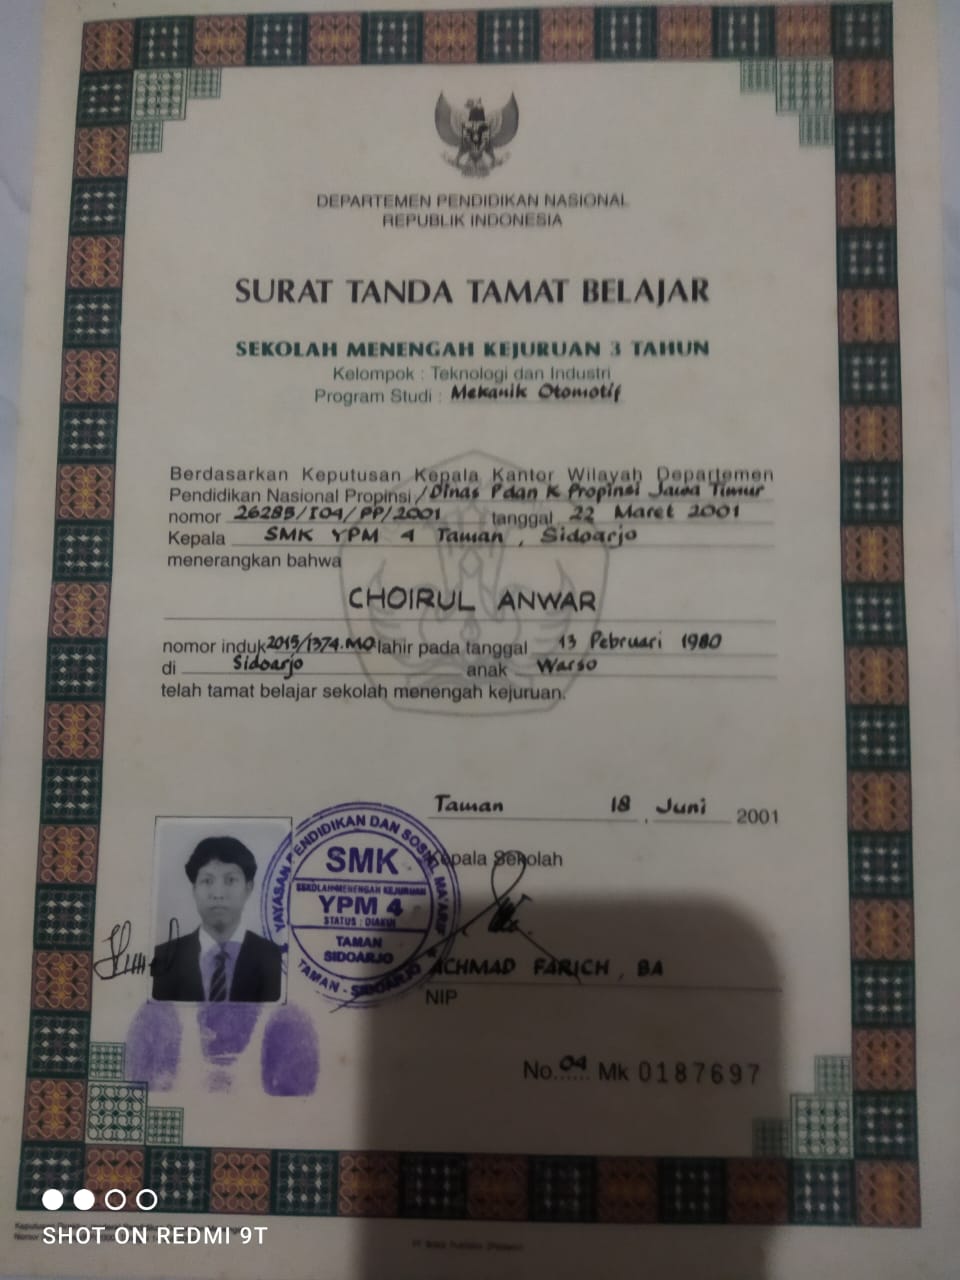 DEPARTEMEN PENDIDIKAN NASIONAL
REPUBLIK INDONESIA
SURAT TANDA TAMAT BELAJAR
SEKOLAH MENENGAH KEJURUAN 3 TAHUN
Kelompok : Teknologi dan Industri
Program Studi : Mekanik Otomotif
Berdasarkan Keputusan Kepala Kantor Wilayah Departemen
Pendidikan Nasional Propinsi / Dinas P dan K Propinsi Jawa Timur
nomor 26285/I04/PP/2001 tanggal 22 Maret 2001
Kepala SMK YPM 4 Taman, Sidoarjo
menerangkan bahwa
CHOIRUL ANWAR
nomor induk 2015/1374.MO lahir pada tanggal 13 Pebruari 1980
di Sidoarjo anak Warso
telah tamat belajar sekolah menengah kejuruan.
Taman 18 Juni 2001
Kepala Sekolah
YAYASAN PENDIDIKAN DAN SOSIAL MA'ARIF
SMK
SEKOLAH MENENGAH KEJURUAN
YPM 4
STATUS : DIAKUI
TAMAN
SIDOARJO
TAMAN - SIDOARJO
ACHMAD FARICH, BA
NIP
No. 04 Mk 0187697
SHOT ON REDMI 9T